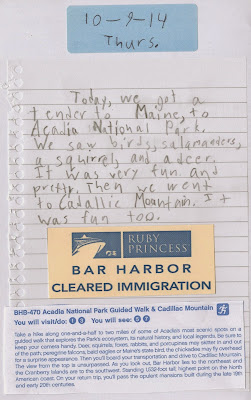 10-9-14
Thurs.
Today, we got a
tender to Maine, to
Acadia National Park.
We saw birds, salamanders,
a squirrel, and a deer.
It was very fun and
pretty. Then we went
to Cadallic Mountain. It
was fun too.
RUBY
PRINCESS
BAR HARBOR
CLEARED IMMIGRATION
BHB-470 Acadia National Park Guided Walk & Cadillac Mountain
You will visit/do: You will see:
Take a hike along one-and-a-half to two miles of some of Acadia's most scenic spots on a
guided walk that explores the Park's ecosystem, its natural history, and local legends. Be sure to
keep your camera handy. Deer, squirrels, foxes, rabbits, and porcupines may skitter in and out
of the path; peregrine falcons, bald eagles or Maine's state bird, the chickadee may fly overhead
for a surprise appearance. Then you'll board your transportation and drive to Cadillac Mountain.
The view from the top is unsurpassed. As you look out, Bar Harbor lies to the northeast and
the Cranberry Islands are to the southwest. Standing 1,532-foot tall, highest point on the North
American coast. On your return trip, you'll pass the opulent mansions built during the late 19th
and early 20th centuries.